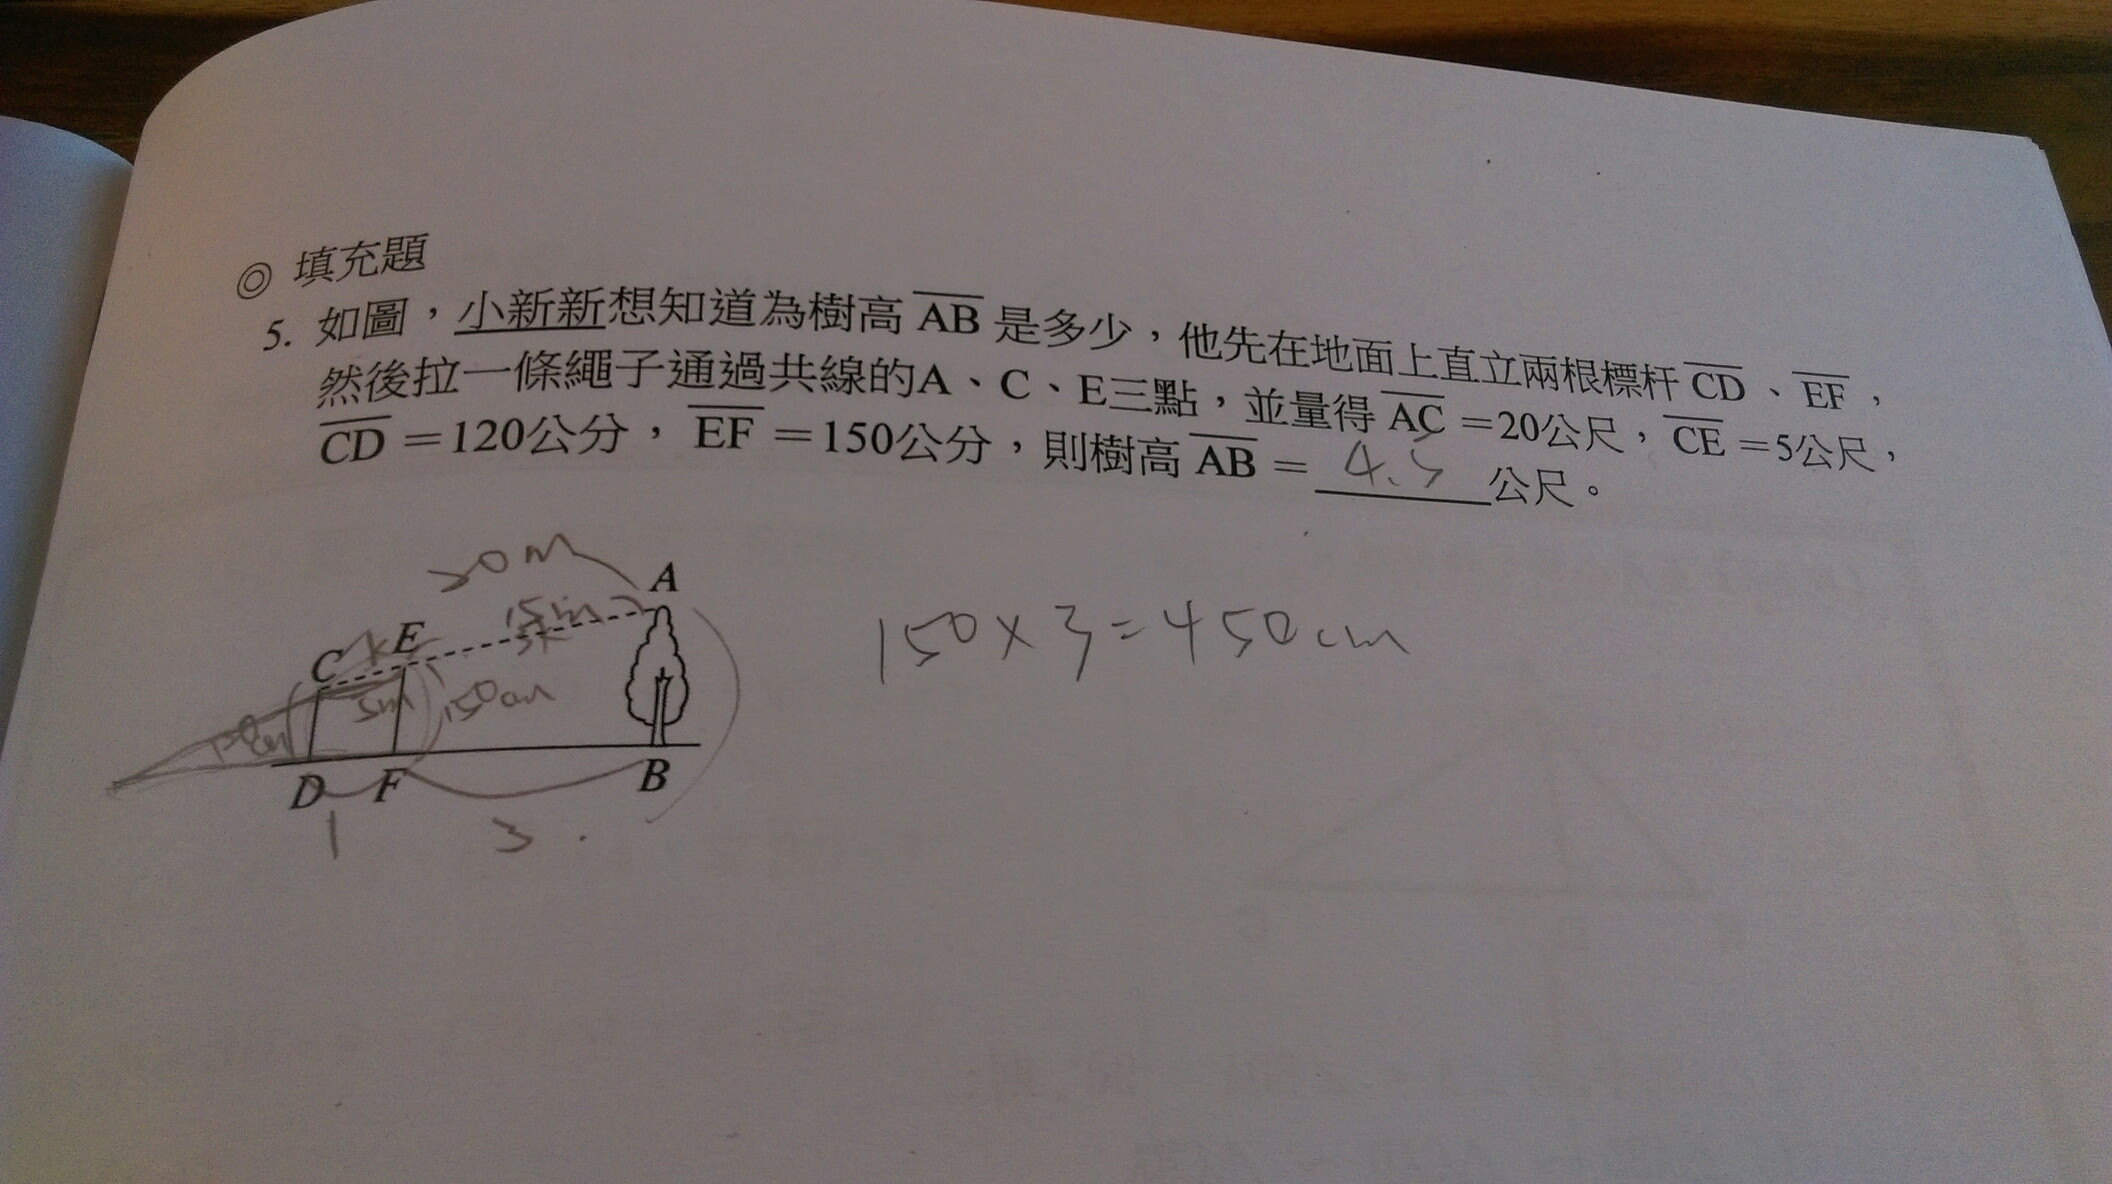 ◎ 填充題
5. 如圖，小新新想知道為樹高 AB 是多少，他先在地面上直立兩根標杆 CD、EF，
然後拉一條繩子通過共線的A、C、E三點，並量得 AC =20公尺，CE =5公尺，
CD =120公分，EF =150公分，則樹高 AB = 4.5 公尺。
20m
A
15m
E
C
5m
150cm
150×3=450cm
D F B
1 3